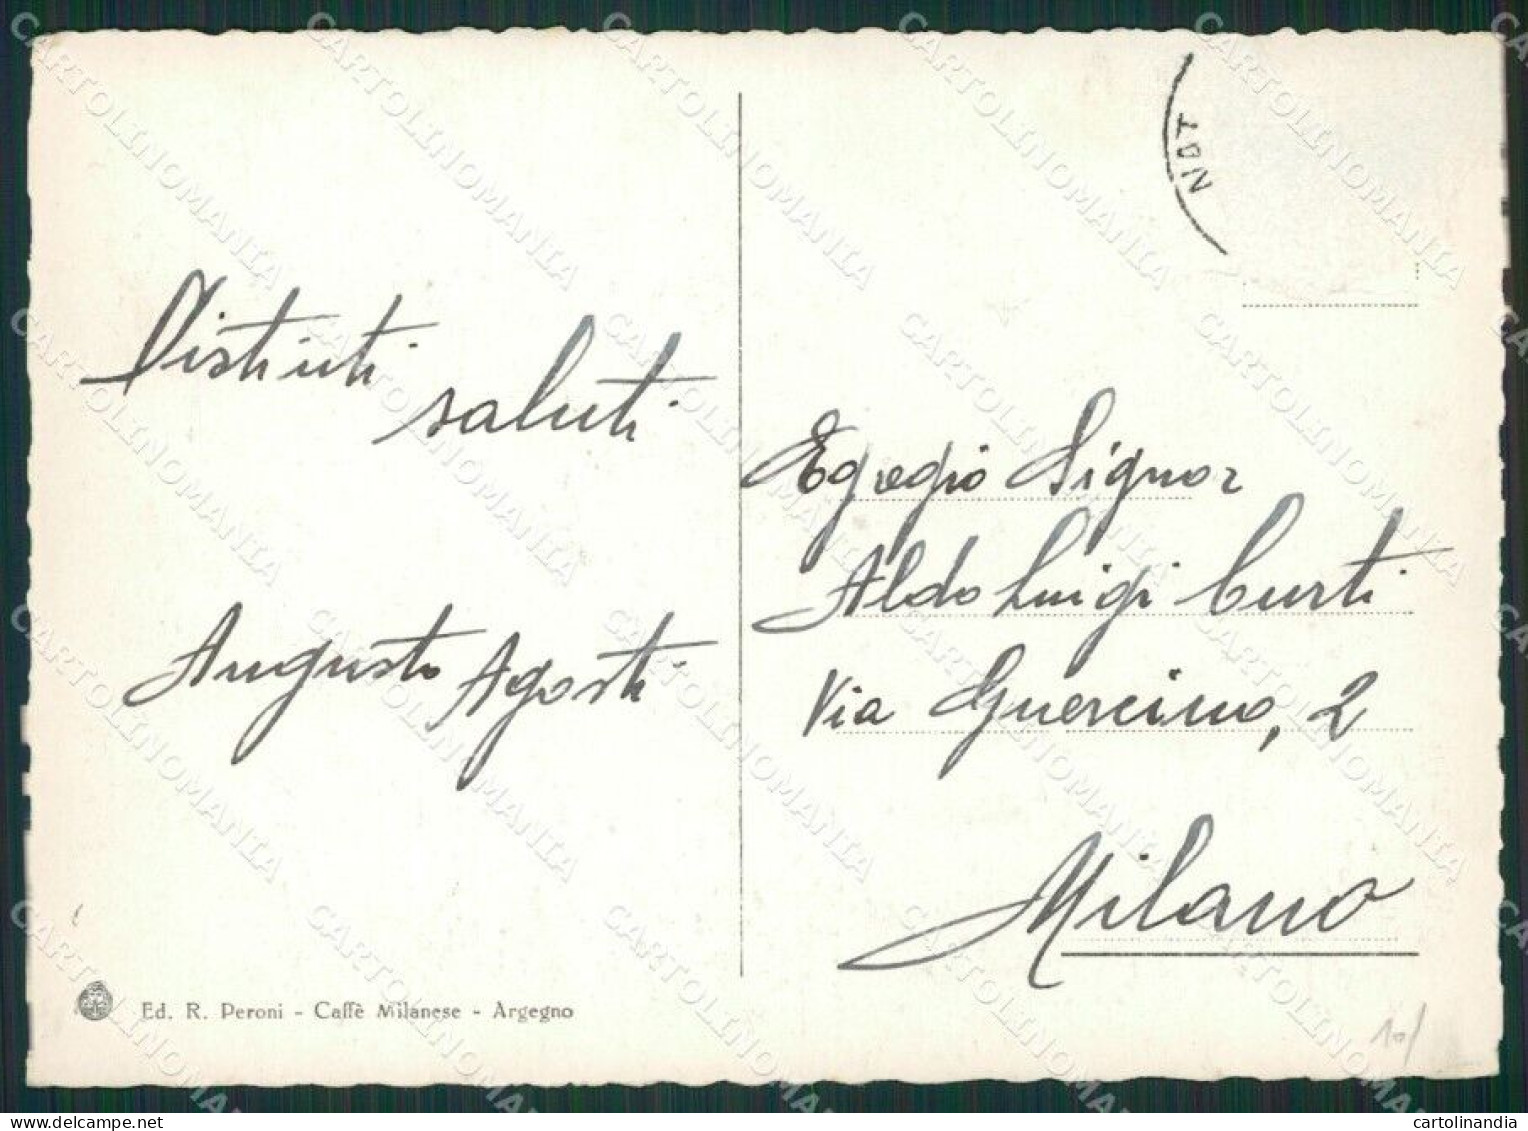 Distinti
saluti
Augusto Agosti
Egregio Signor
Aldo Luigi Curti
Via Guercino, 2
Milano
Ed. R. Peroni - Caffè Milanese - Argegno
10/
CARTOLINOMANIA
cartolinandia